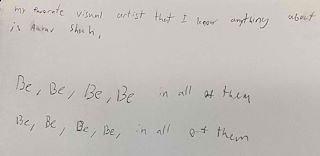 my favorate visual artist that I know anything about
is Shah,
Be, Be, Be, Be in all of them
Be, Be, Be, Be, in all of them